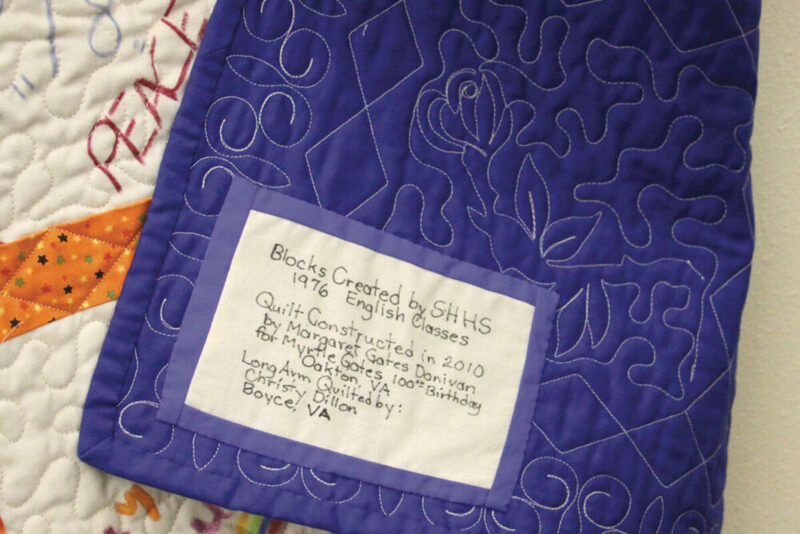 PEACE
Blocks Created by SHHS
1976 English Classes
Quilt Constructed in 2010
by Margaret Gates Donivan
for Myrtle Gates, 100th Birthday
Oakton, VA
Long Arm Quilted by:
Christy Dillon
Boyce, VA